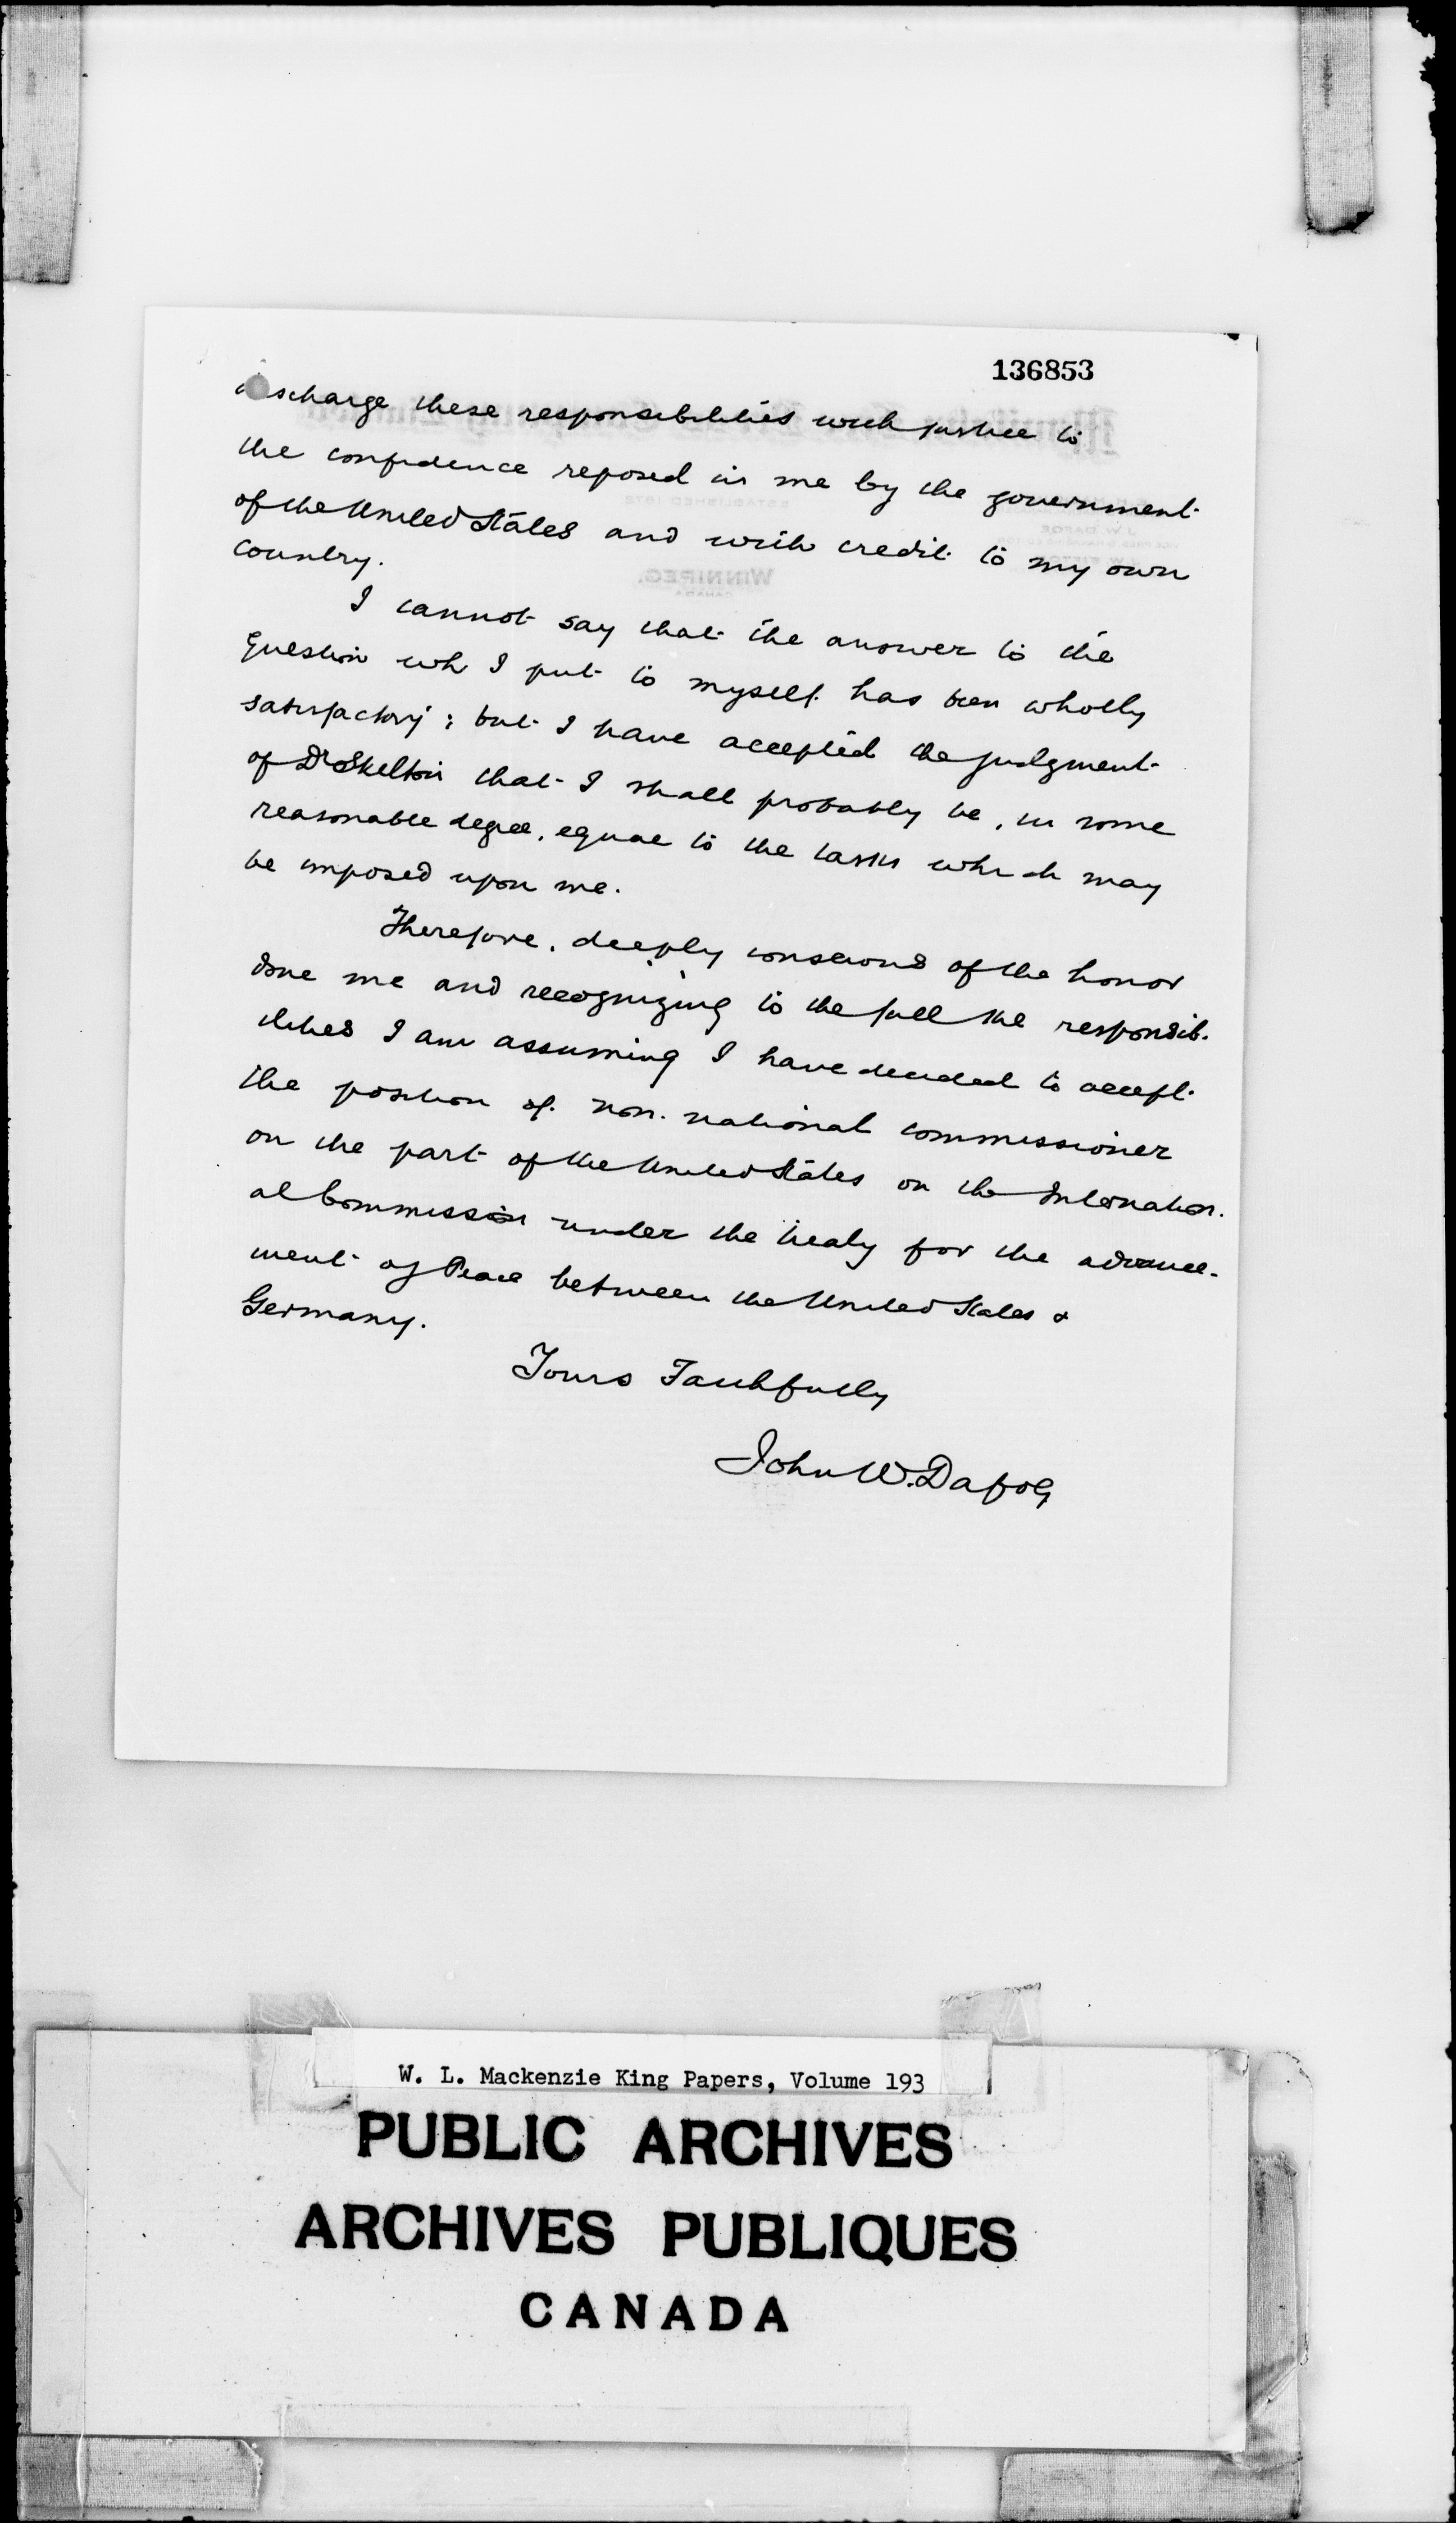 136853
discharge these responsibilities with justice to
the confidence reposed in me by the government
of the United States and with credit to my own
country.
I cannot say that the answer to the
question wh I put to myself has been wholly
satisfactory; but I have accepted the judgment
of Dr Skelton that I shall probably be, in some
reasonable degree, equal to the tasks which may
be imposed upon me.
Therefore, deeply conscious of the honor
done me and recognizing to the full the responsib-
ilities I am assuming I have decided to accept
the position of non-national commissioner
on the part of the United States on the Internation-
al Commission under the treaty for the advance-
ment of Peace between the United States &
Germany.
Yours Faithfully
John W. Dafoe
ESTABLISHED 1872
J.W. DAFOE
WINNIPEG,
CANADA
W. L. Mackenzie King Papers, Volume 193
PUBLIC ARCHIVES
ARCHIVES PUBLIQUES
CANADA